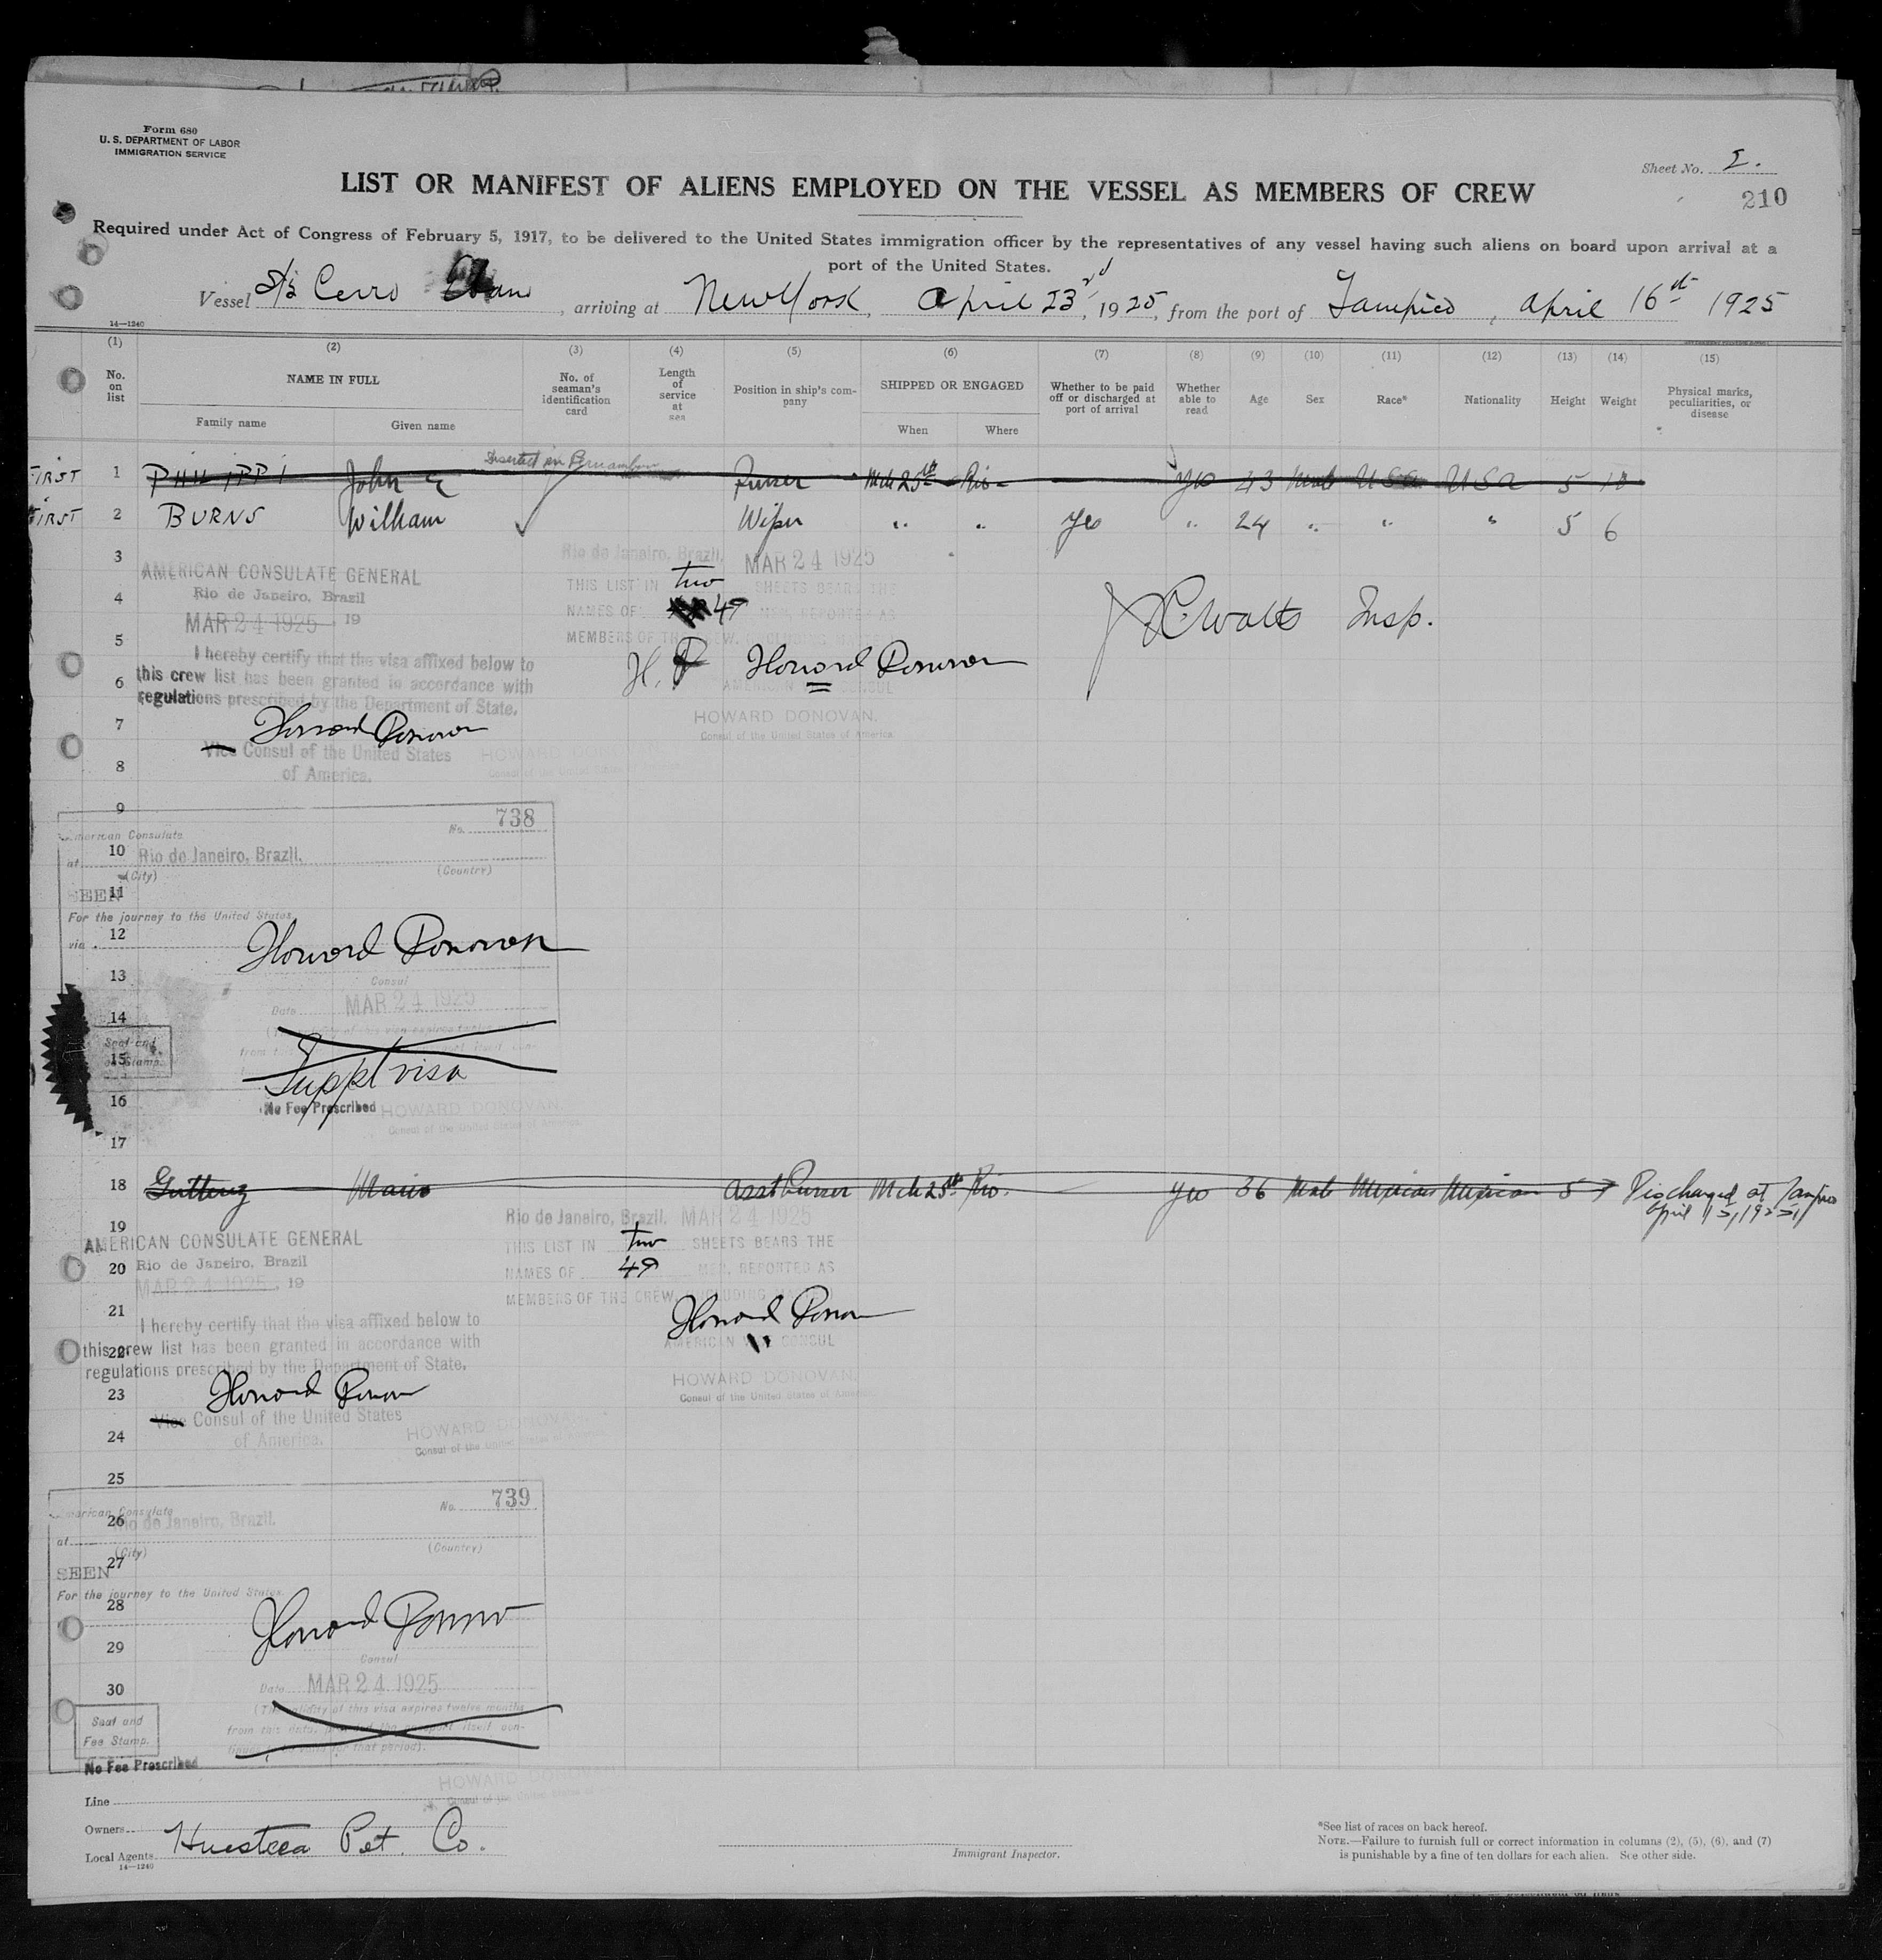 Form 680
U. S. DEPARTMENT OF LABOR
IMMIGRATION SERVICE
Sheet No. 2.
LIST OR MANIFEST OF ALIENS EMPLOYED ON THE VESSEL AS MEMBERS OF CREW
210
Required under Act of Congress of February 5, 1917, to be delivered to the United States immigration officer by the representatives of any vessel having such aliens on board upon arrival at a
port of the United States.
Vessel S/S Cerro Ebano, arriving at New York, April 23rd, 1925, from the port of Tampico, April 16th 1925
14—1240
(1) (2) (3) (4) (5) (6) (7) (8) (9) (10) (11) (12) (13) (14) (15)
No. on list
NAME IN FULL
Family name Given name
No. of seaman's identification card
Length of service at sea
Position in ship's company
SHIPPED OR ENGAGED
When Where
Whether to be paid off or discharged at port of arrival
Whether able to read
Age Sex Race* Nationality Height Weight
Physical marks, peculiarities, or disease
FIRST 1 PHILIPPI John E Deserted in Pernambuco Purser Mch 25th Rio yes 43 Male USA USA 5 10
FIRST 2 BURNS William Wiper " " yes " 24 " " " 5 6
3
Rio de Janeiro, Brazil. MAR 24 1925
AMERICAN CONSULATE GENERAL
Rio de Janeiro, Brazil
MAR 24 1925, 19
THIS LIST IN two SHEETS BEARS THE
4
NAMES OF 49 MEN, REPORTED AS
MEMBERS OF THE CREW, EXCLUDING MASTER
5
Insp.
I hereby certify that the visa affixed below to
this crew list has been granted in accordance with
regulations prescribed by the Department of State.
6
Howard Donovan
AMERICAN CONSUL
HOWARD DONOVAN.
Consul of the United States of America.
7
Howard Donovan
Vice Consul of the United States
of America.
HOWARD DONOVAN
8
9
No. 738
American Consulate
at Rio de Janeiro, Brazil.
10
(City) (Country)
SEEN
11
For the journey to the United States.
via
12
Howard Donovan
13
Consul
Date MAR 24 1925
14
Seal and
Fee Stamp.
15
Suppl visa
16
No Fee Prescribed
HOWARD DONOVAN.
Consul of the United States of America.
17
18 Mario Asst Purser Mch 25th Rio. yes 36 Male Mexican Mexican 5 7 Discharged at Tampico
April 15, 1925
19
Rio de Janeiro, Brazil. MAR 24 1925
AMERICAN CONSULATE GENERAL
THIS LIST IN two SHEETS BEARS THE
20
Rio de Janeiro, Brazil
MAR 24 1925, 19
NAMES OF 49 MEN, REPORTED AS
MEMBERS OF THE CREW, EXCLUDING MASTER
21
Howard Donovan
AMERICAN CONSUL
I hereby certify that the visa affixed below to
22
this crew list has been granted in accordance with
regulations prescribed by the Department of State.
HOWARD DONOVAN.
Consul of the United States of America.
23
Howard Donovan
Vice Consul of the United States
of America.
24
HOWARD DONOVAN.
Consul of the United States of America.
25
No. 739
American Consulate
26
at Rio de Janeiro, Brazil.
(City) (Country)
27
SEEN
For the journey to the United States.
28
Howard Donovan
29
Consul
30
Date MAR 24 1925
(The validity of this visa expires twelve months
from this date, provided the passport itself con-
tinues to be valid for that period).
Seal and
Fee Stamp.
No Fee Prescribed
HOWARD DONOVAN
Line
Owners
Local Agents Huasteca Pet. Co.
14—1240
Immigrant Inspector.
*See list of races on back hereof.
NOTE.—Failure to furnish full or correct information in columns (2), (5), (6), and (7)
is punishable by a fine of ten dollars for each alien. See other side.